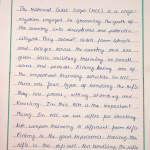 The National Cadet Corps (NCC) is a orga-
nization engaged in grooming the youth of
the country into disciplined and patriotic
citizens. They cadets from schools
and college across the country and are
given basic military training in small
arms and parade. Firing being one of
the important training activities in NCC,
there are four types of firing the rifle
they are prone, sitting, standing and
kneeling. In this firing is the important
thing. In NCC we use rifles for shooting
but weapon training is different from rifle
Firing. In the good important. Handling the
rifle is the difficult. For handling the rifle